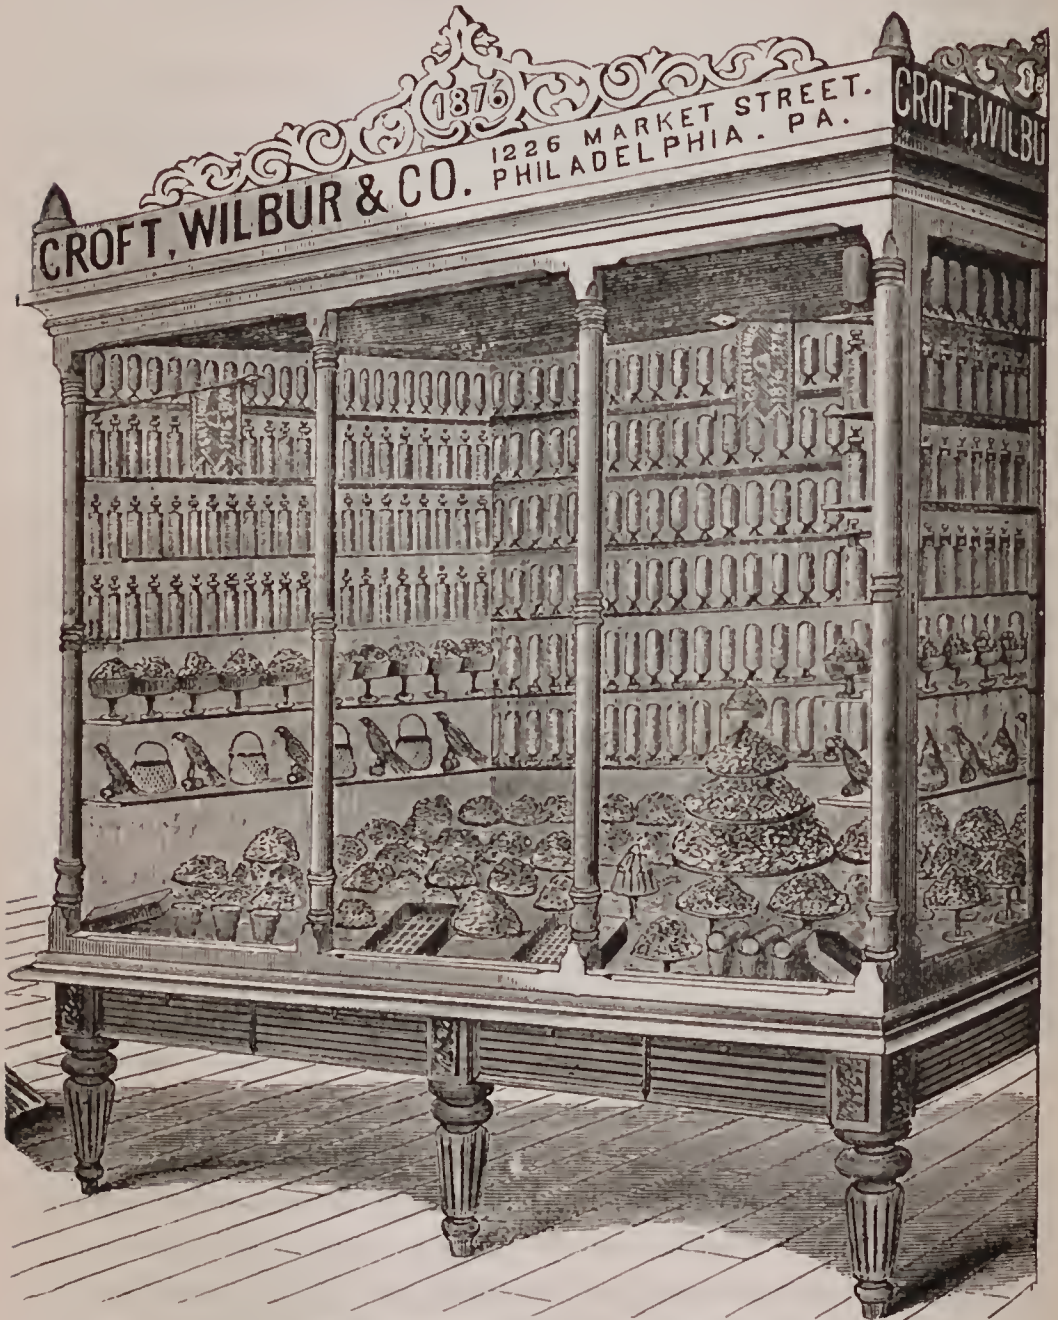 1876
CROFT, WILBUR & CO.
1226 MARKET STREET.
PHILADELPHIA. PA.
CROFT, WILBU